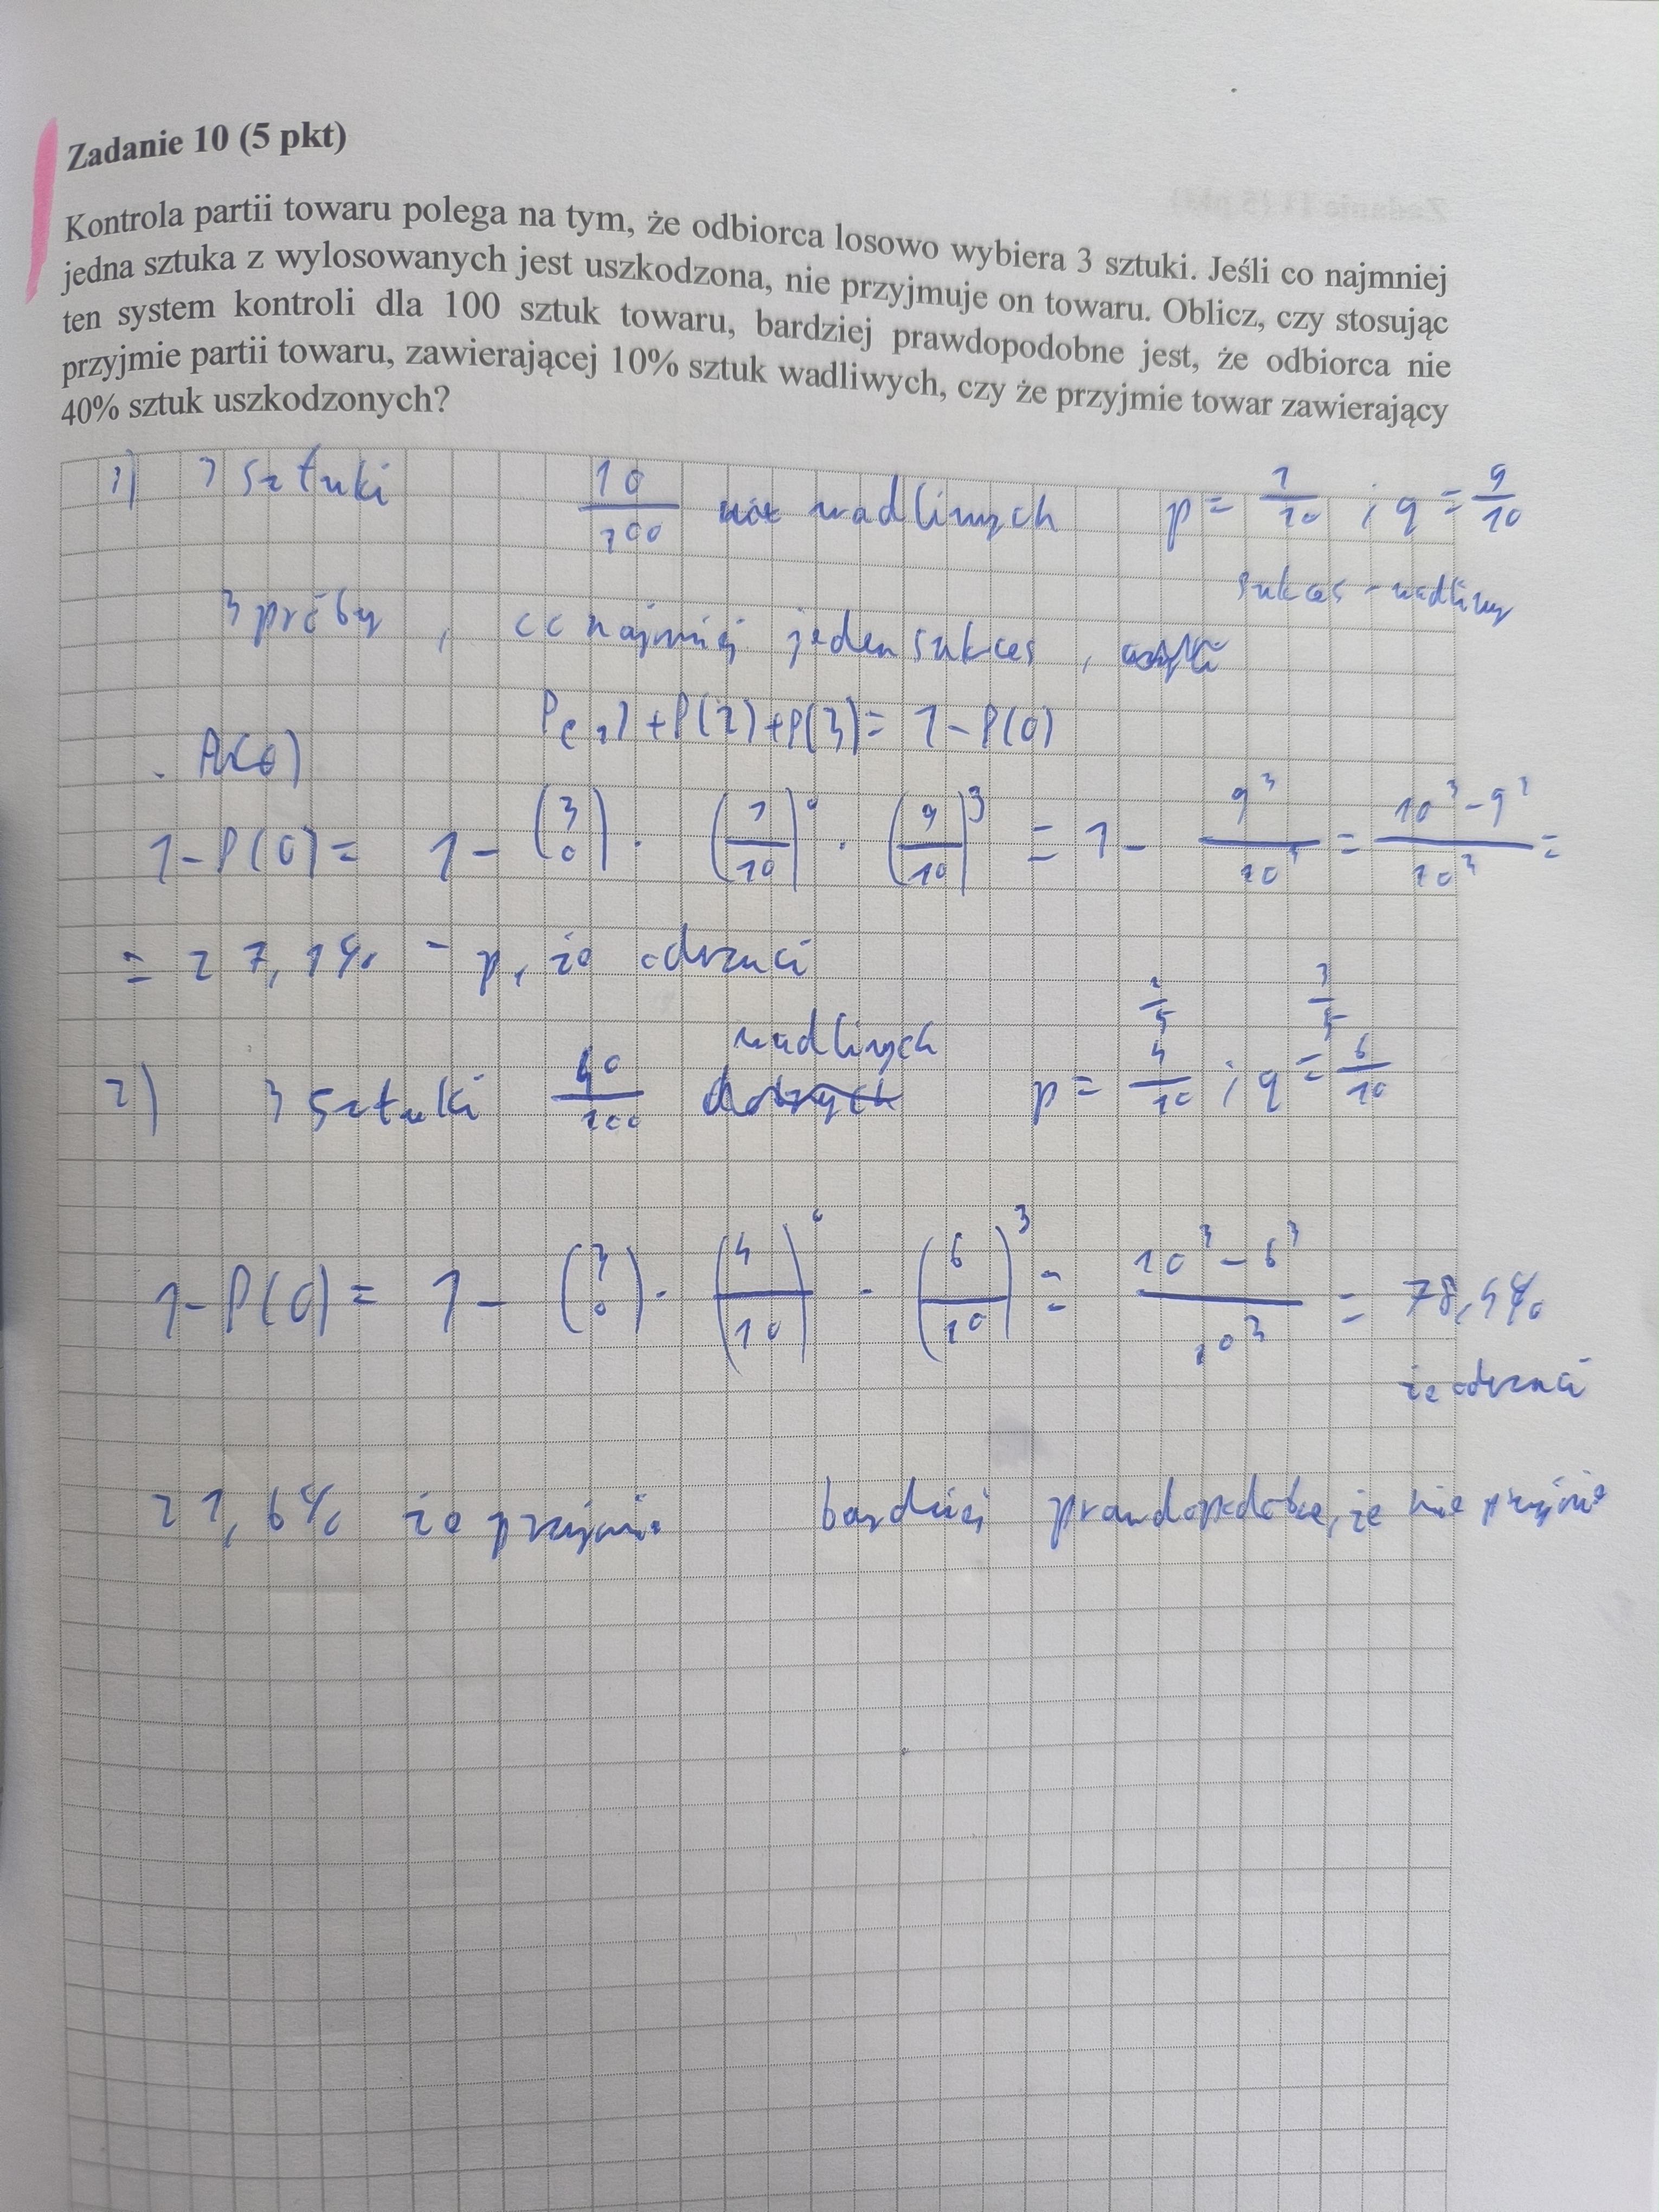 Zadanie 10 (5 pkt)
Kontrola partii towaru polega na tym, że odbiorca losowo wybiera 3 sztuki. Jeśli co najmniej
jedna sztuka z wylosowanych jest uszkodzona, nie przyjmuje on towaru. Oblicz, czy stosując
ten system kontroli dla 100 sztuk towaru, bardziej prawdopodobne jest, że odbiorca nie
przyjmie partii towaru, zawierającej 10% sztuk wadliwych, czy że przyjmie towar zawierający
40% sztuk uszkodzonych?
1) 3 sztuki 10/100 wadliwych p = 1/10 ; q = 9/10
sukces - wadliwy
3 próby, co najmniej jeden sukces,
P(1)+P(2)+P(3)= 1-P(0)
1-P(0)= 1- (3 0) · (1/10)^0 · (9/10)^3 = 1- 9^3/10^3 = 10^3-9^3/10^3 =
= 27,1% - p, że odrzuci
2/5 3/5
2) 3 sztuki 40/100 wadliwych p = 4/10 ; q = 6/10
1-P(0)= 1- (3 0) · (4/10)^0 · (6/10)^3 = 10^3-6^3/10^3 = 78,4%
że odrzuci
21,6% że przyjmie bardziej prawdopodobne, że nie przyjmie